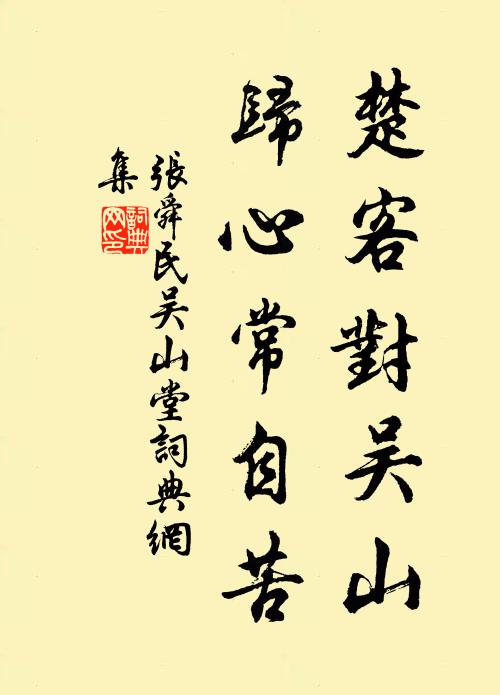 楚客對吴山
歸心常自苦
張舜民吴山堂詞典網
集
詞典网印